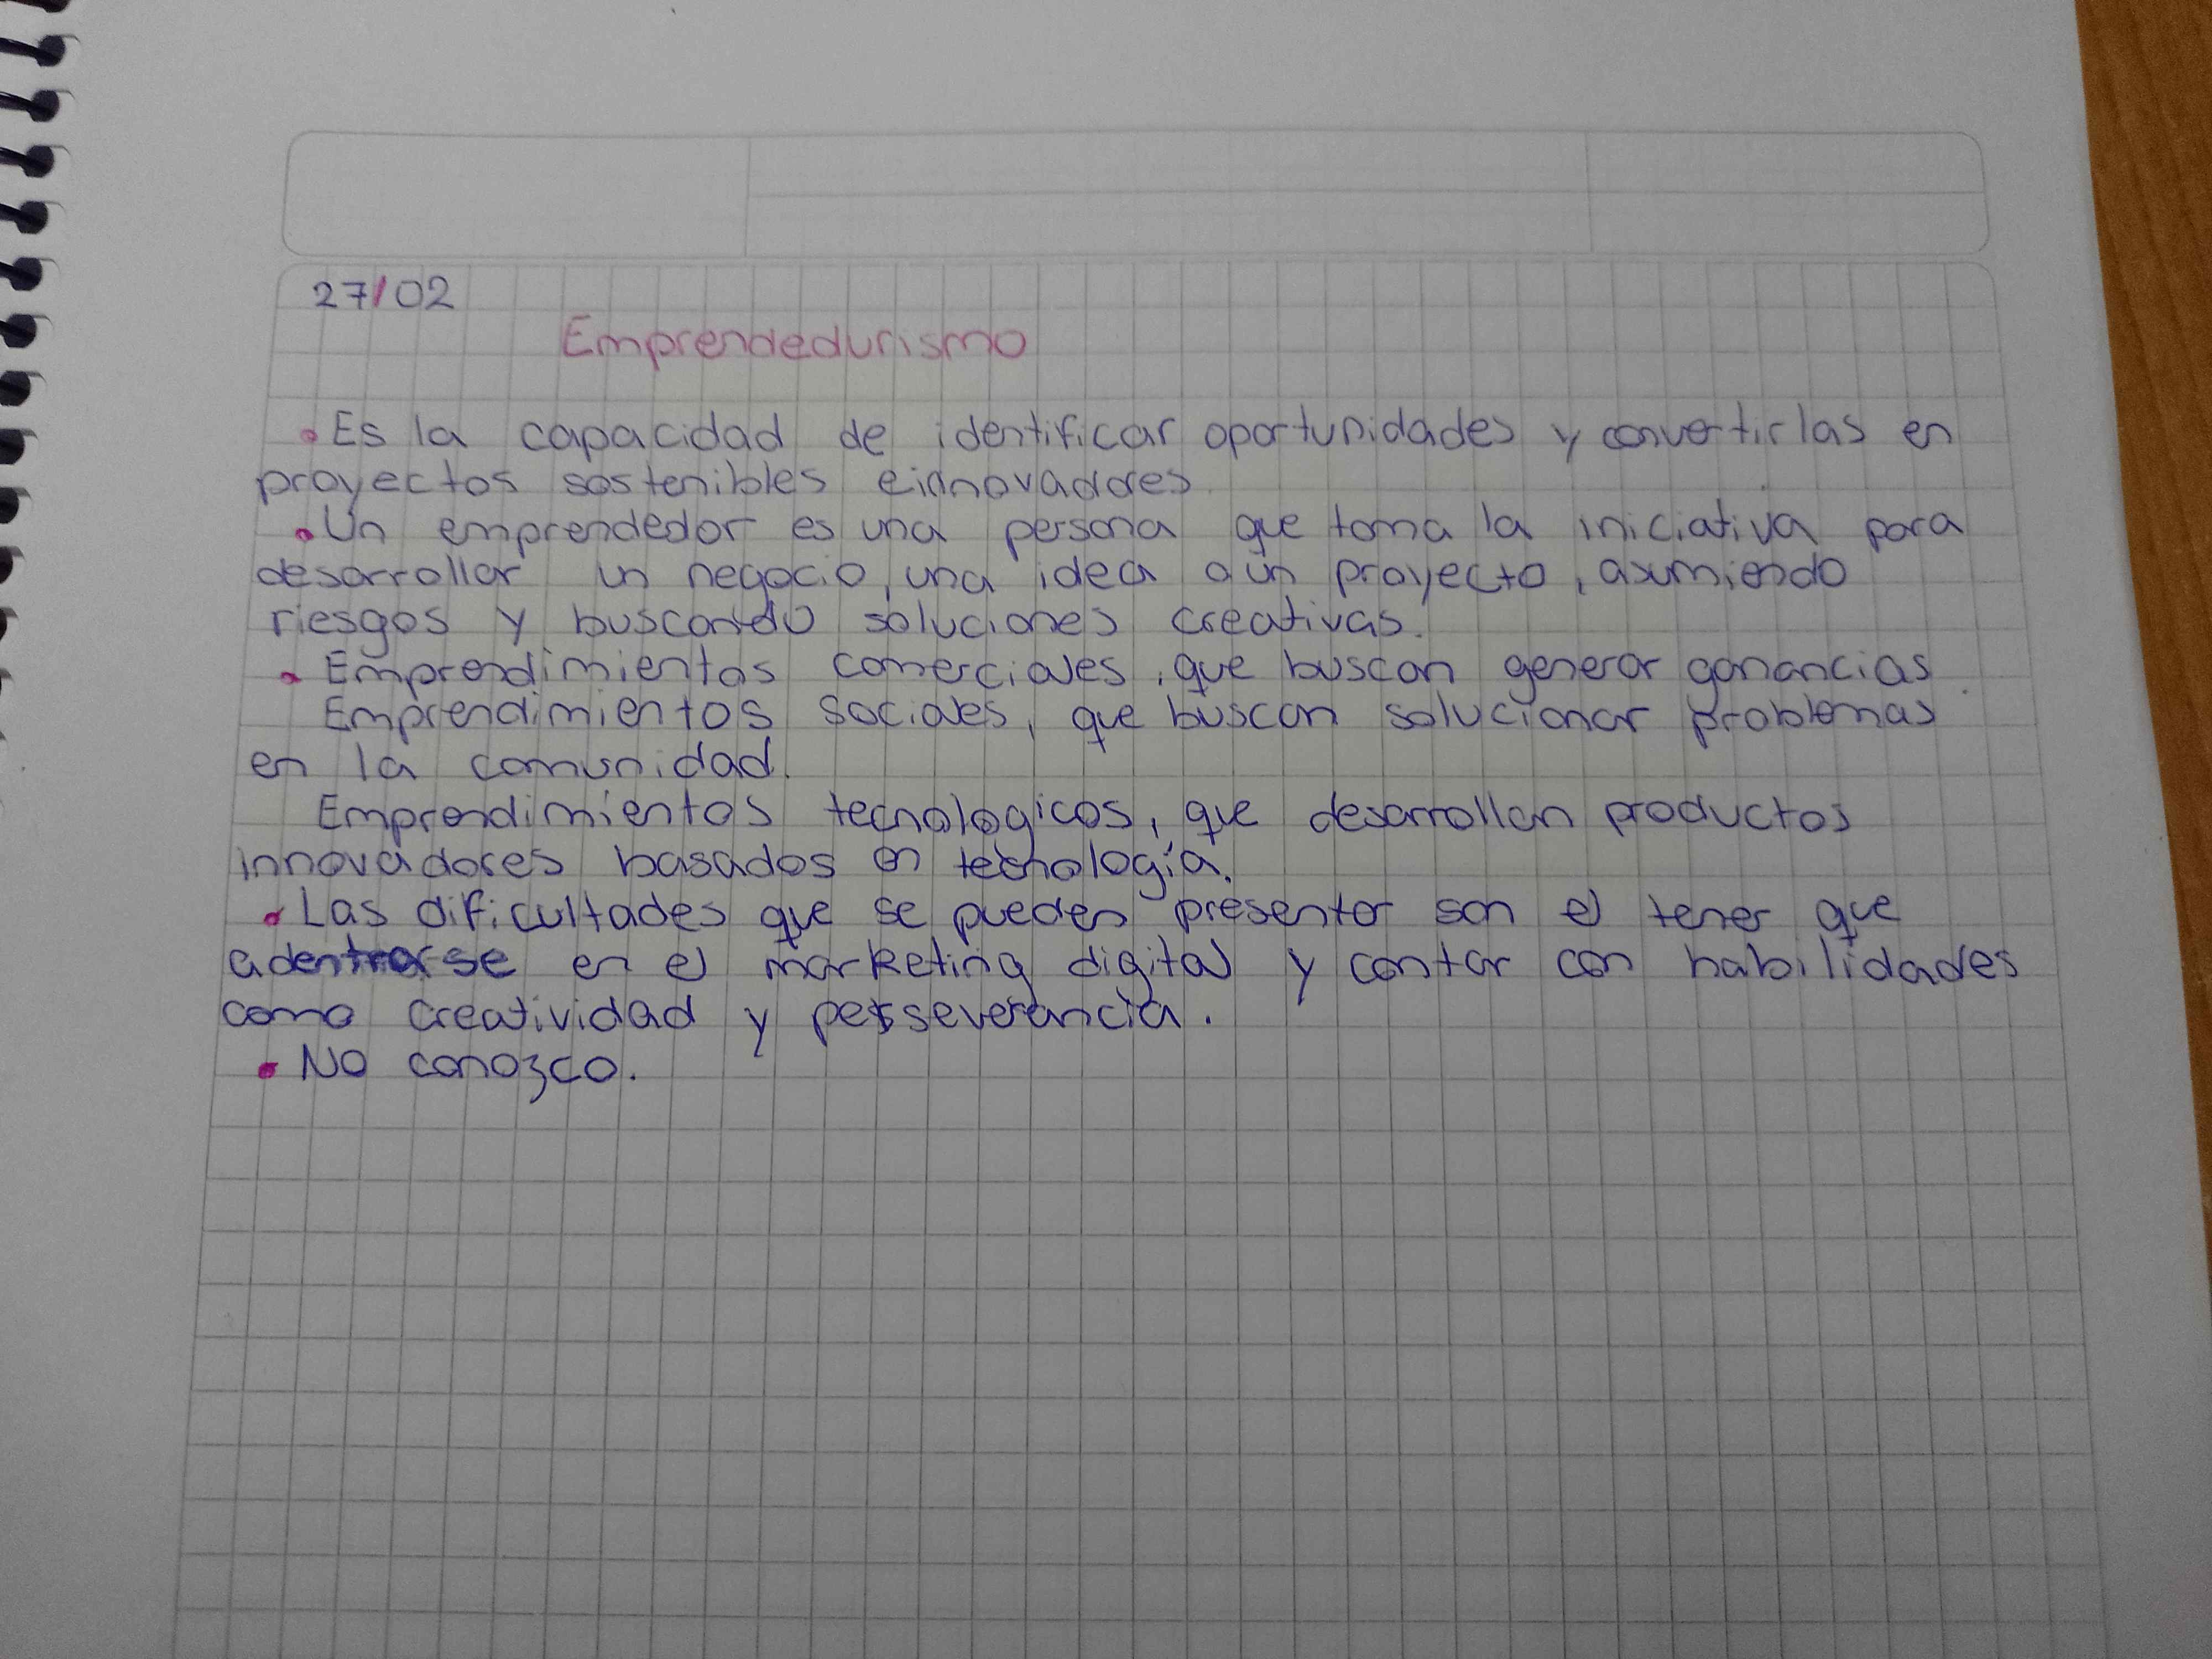 27/02
Emprendedurismo
• Es la capacidad de identificar oportunidades y convertirlas en
proyectos sostenibles e innovadores.
• Un emprendedor es una persona que toma la iniciativa para
desarrollar un negocio, una idea o un proyecto, asumiendo
riesgos y buscando soluciones creativas.
• Emprendimientos comerciales, que buscan generar ganancias
Emprendimientos sociales, que buscan solucionar problemas
en la comunidad.
Emprendimientos tecnologicos, que desarrollan productos
innovadores basados en tecnología.
• Las dificultades que se pueden presentar son el tener que
adentrarse en el marketing digital y contar con habilidades
como creatividad y perseverancia.
• No conozco.